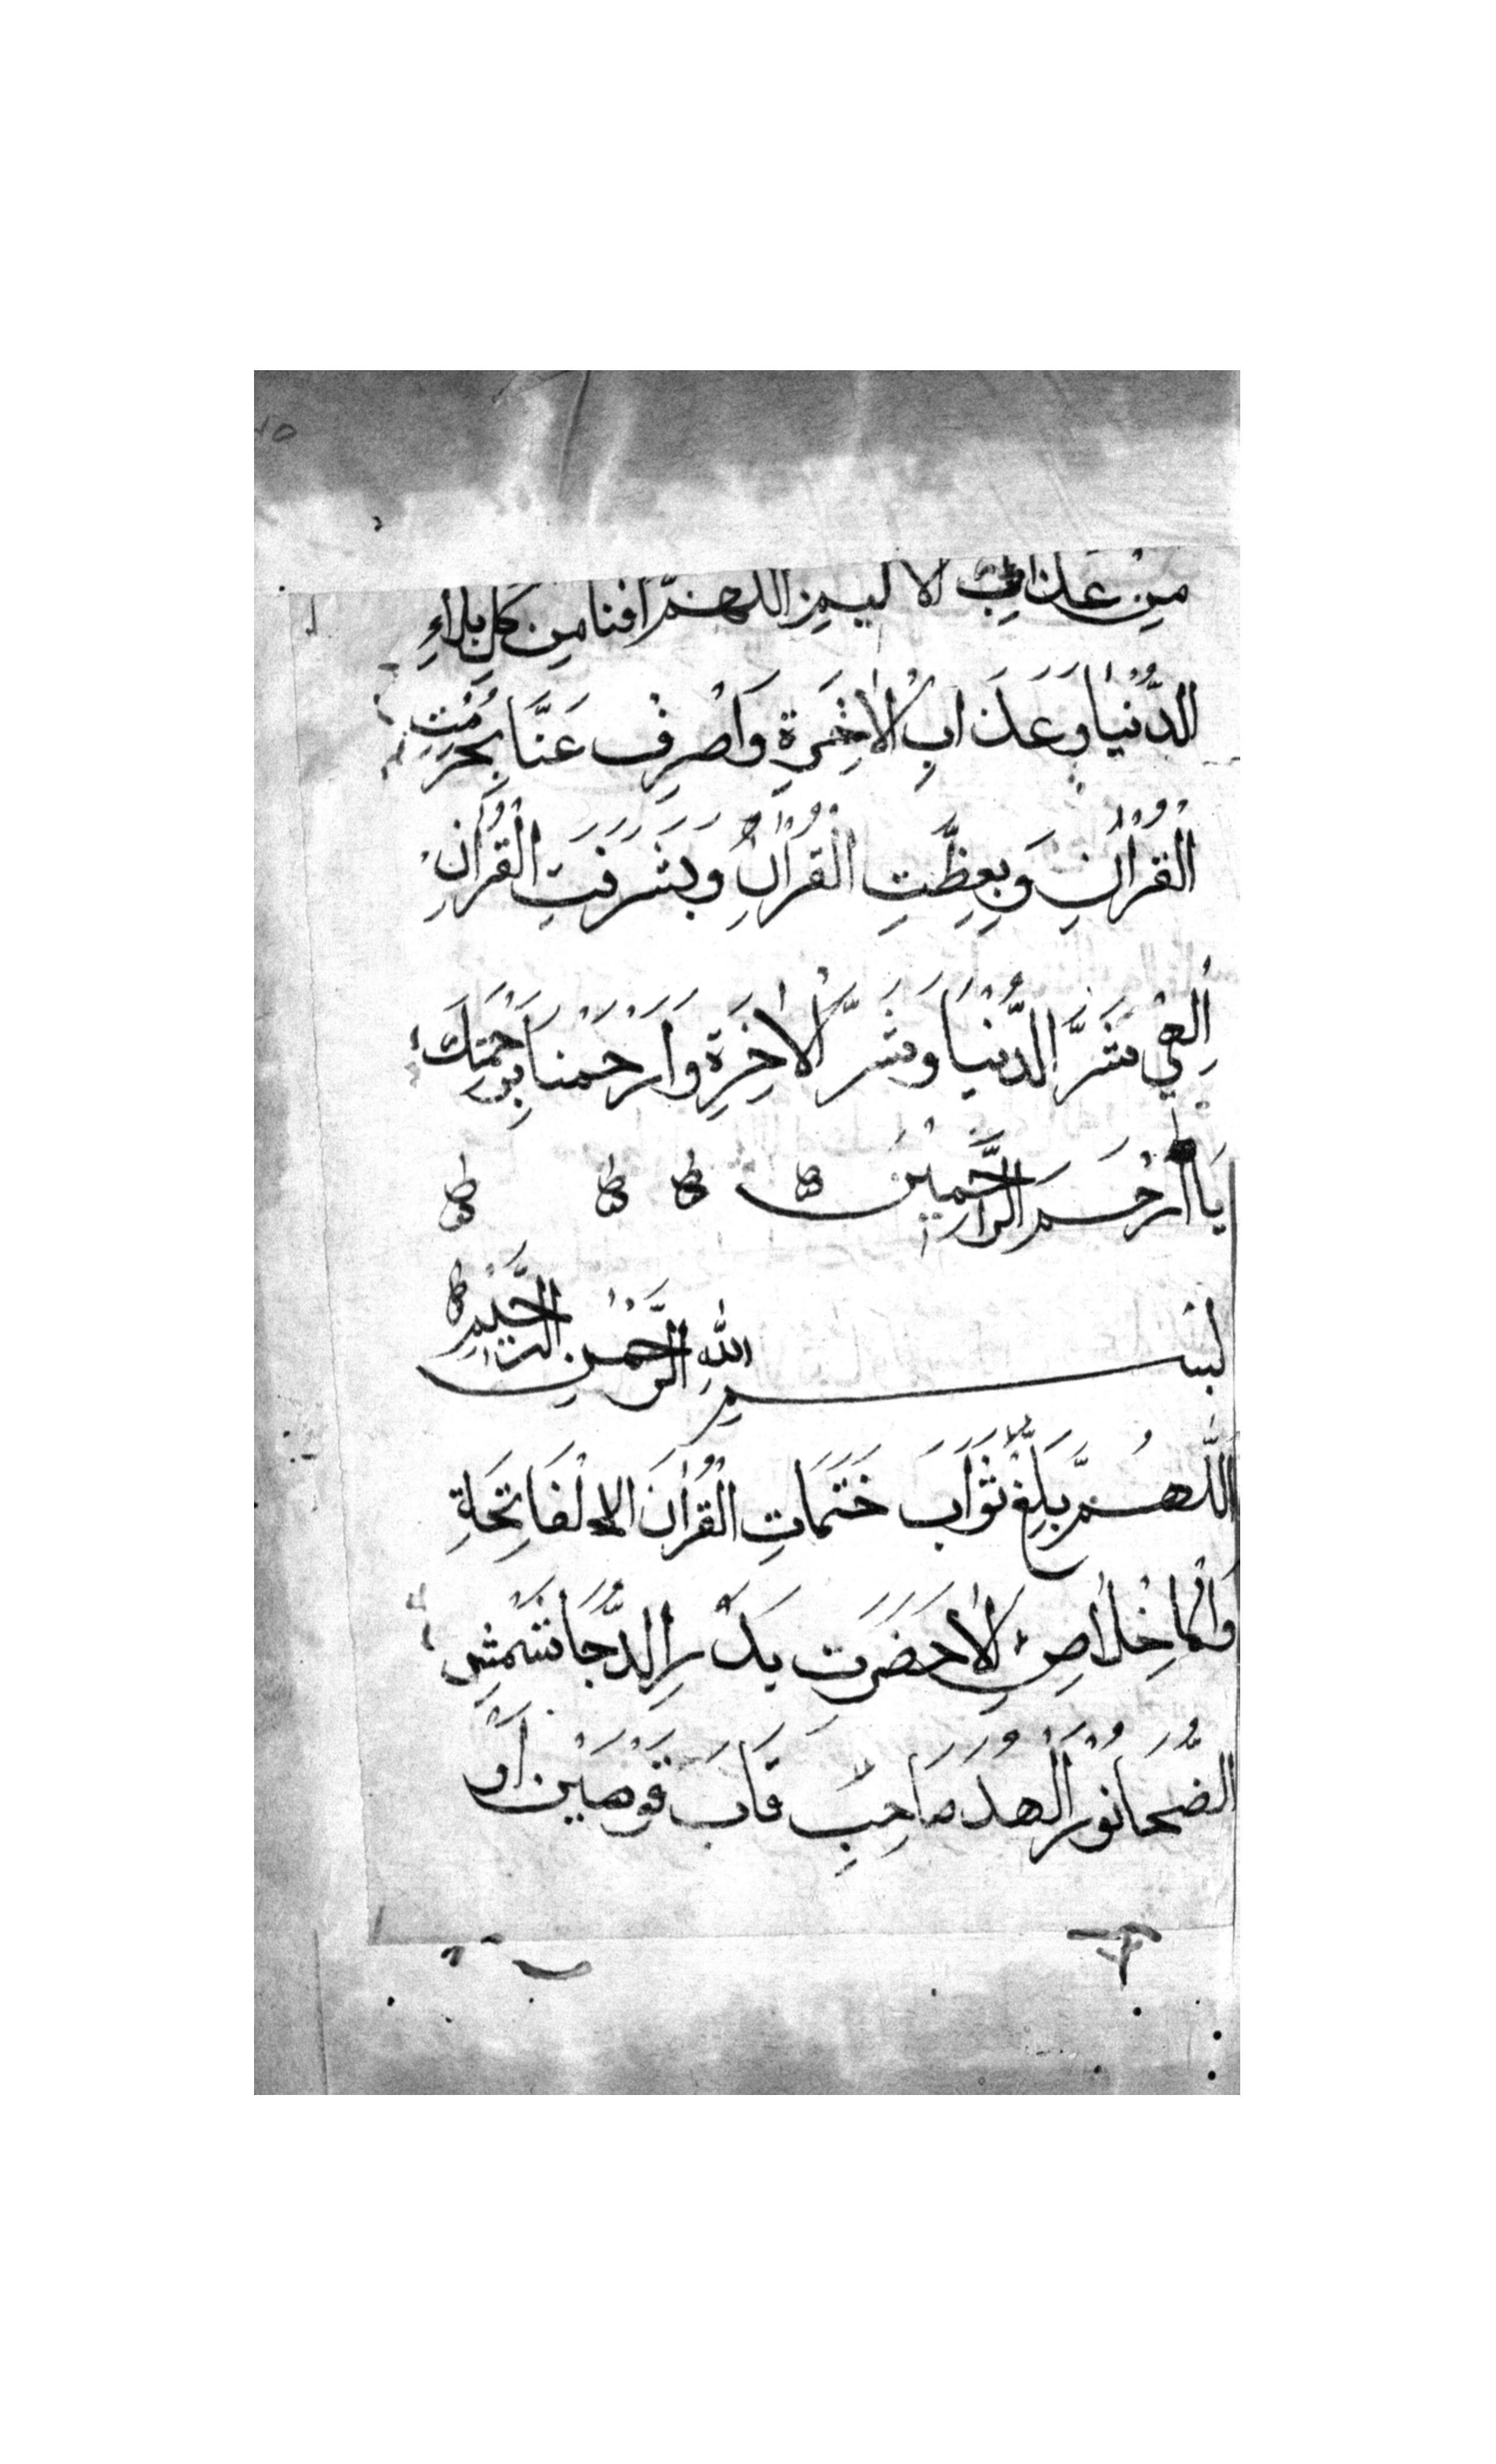 من عذاب الاليم اللهم افنا من كل بلاء
الدُّنْيَا وَعَذَابِ الْاٰخِرَةِ وَاصْرِفْ عَنَّا بِحُرْمَتِ
الْقُرْاٰنِ وَبِعِظَّتِ الْقُرْاٰنِ وَبِشَرَفَتِ الْقُرْاٰنِ
اِلٰهِي شَرَّ الدُّنْيَا وَشَرَّ الْاٰخِرَةِ وَارْحَمْنَا بِرَحْمَتِكَ
يَا اَرْحَمَ الرَّاحِمِيْنَ
بِسْمِ اللّٰهِ الرَّحْمٰنِ الرَّحِيْمِ
اَللّٰهُمَّ بَلِّغْ ثَوَابَ خَتَمَاتِ الْقُرْاٰنَ الْفَاتِحَةِ
حَضَرَت بَدْرِ الدُّجَا شَمْشِ
الضُّحَا نُوْرَ الْهُدَ صَاحِبِ قَابَ قَوْصَيْنِ اَوْ
١٥